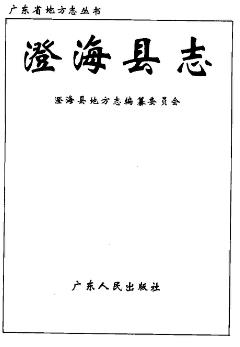 广东省地方志丛书
澄海县志
澄海县地方志编纂委员会
广东人民出版社